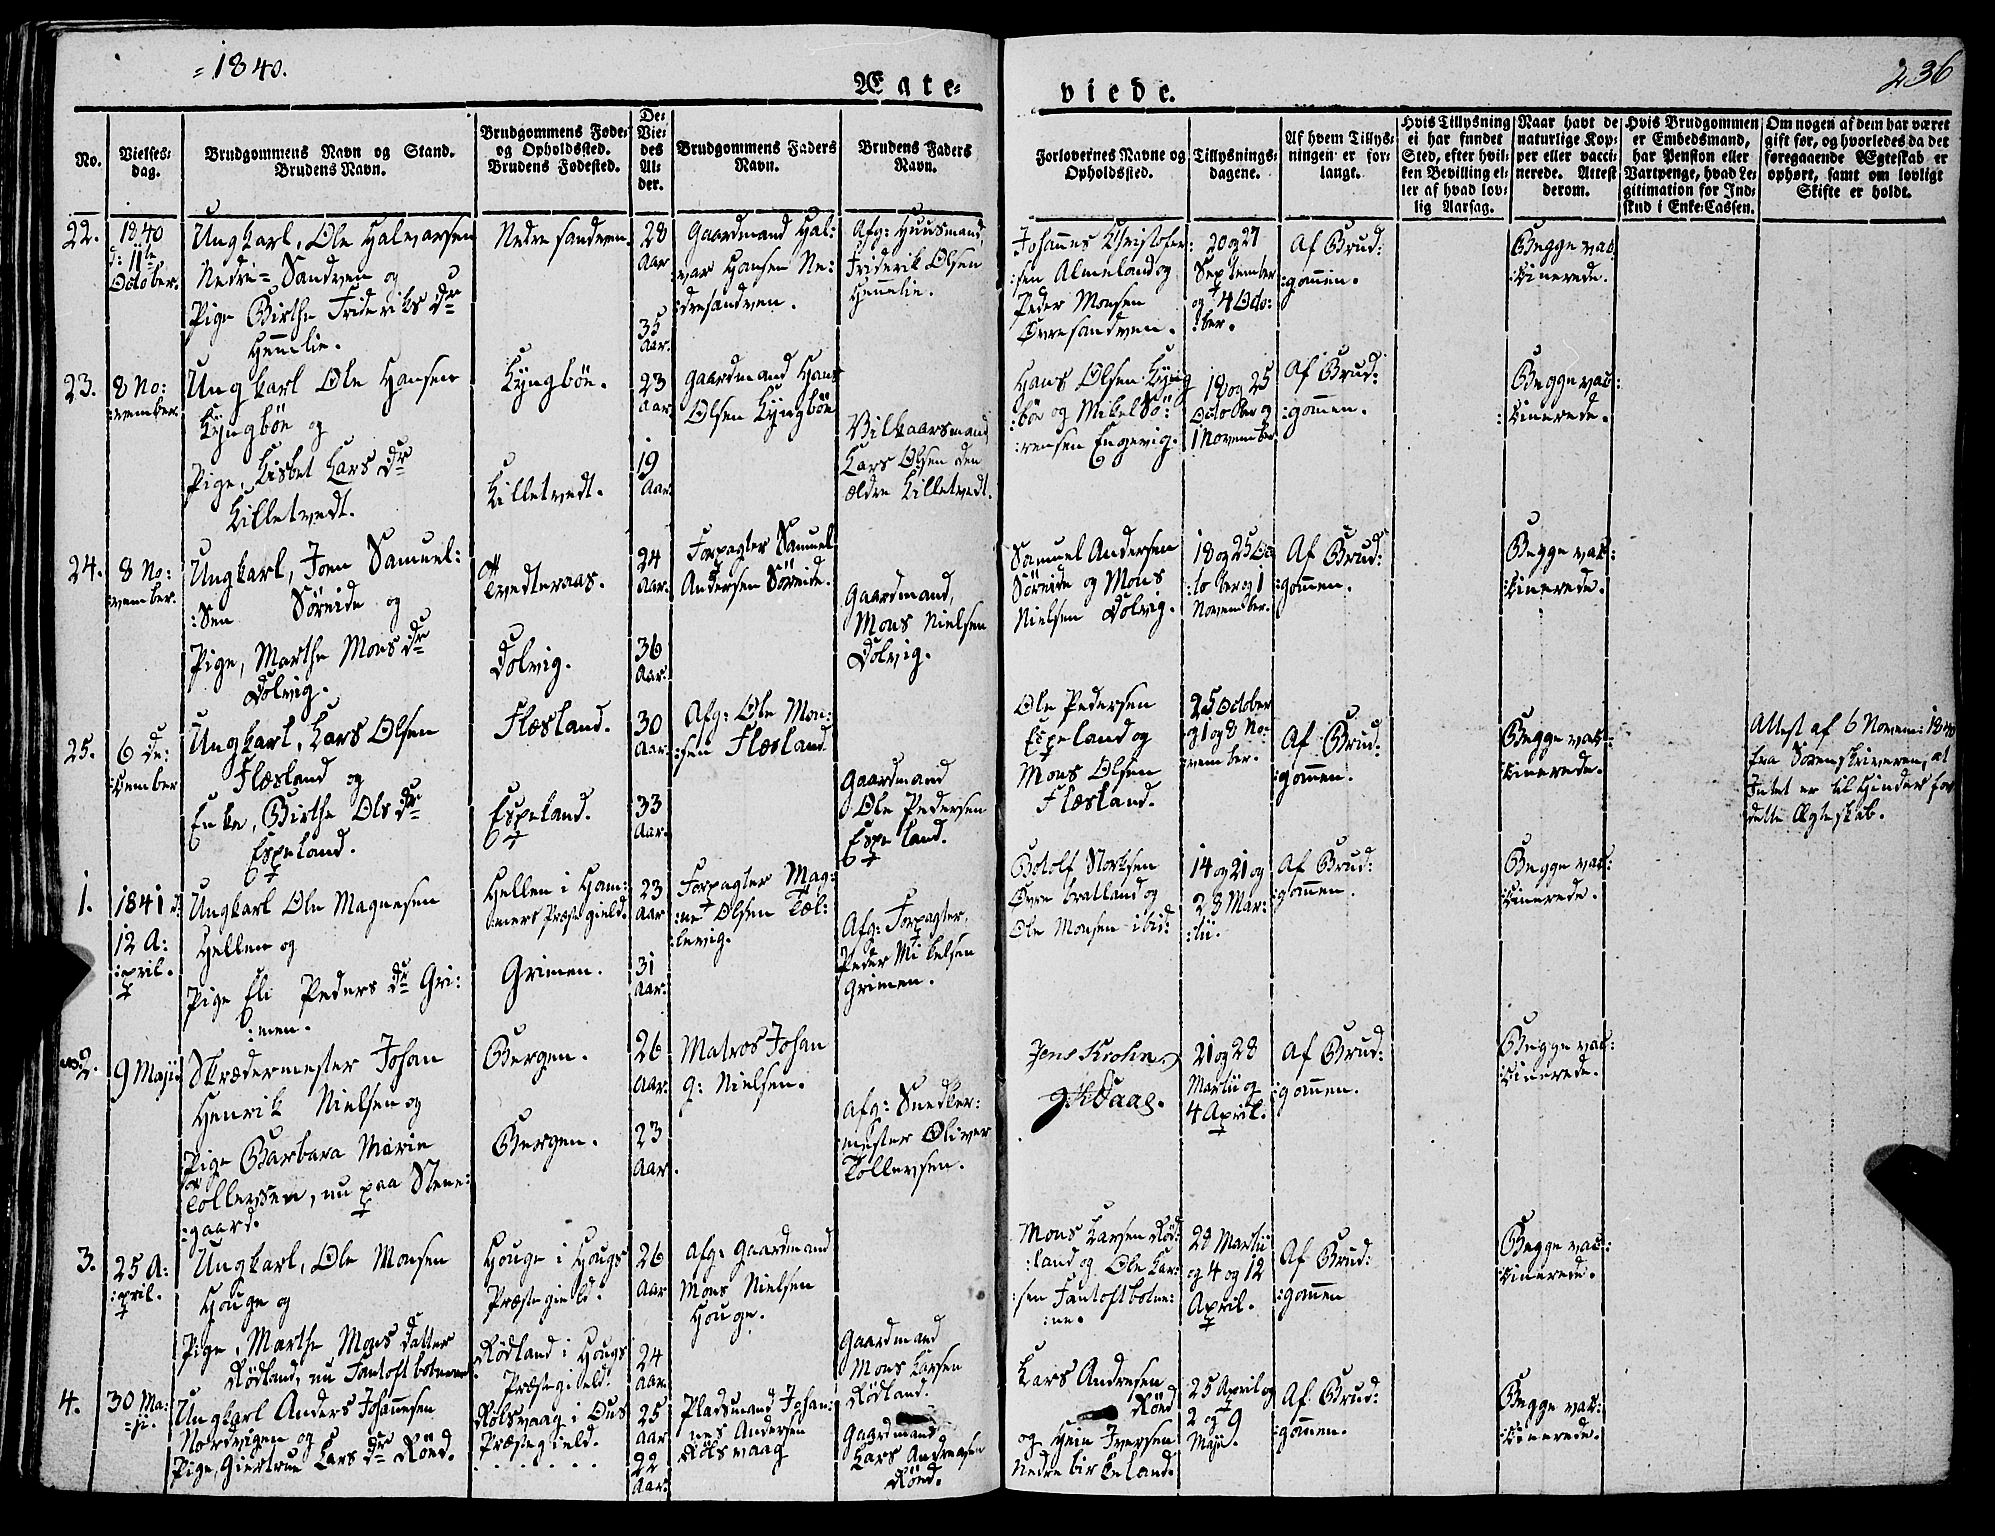 = 1840.
236
Ægte=
viede.
No.
Vielses-
dag.
Brudgommens Navn og Stand.
Brudens Navn.
Brudgommens Føde-
og Opholdssted.
Brudens Fødested.
De
Vie-
des
Al-
der.
Brudgommens Faders
Navn.
Brudens Faders
Navn.
Forlovernes Navne og
Opholdssted.
Tillysnings-
dagene.
Af hvem Tillys-
ningen er for-
langt.
Hvis Tillysning
ei har fundet
Sted, efter hvil-
ken Bevilling el-
ler af hvad lov-
lig Aarsag.
Naar havt de
naturlige Kop-
per eller vacci-
nerede. Attest
derom.
Hvis Brudgommen
er Embedsmand,
har Pension eller
Vartpenge, hvad Le-
gitimation for Ind-
skud i Enke-Cassen.
Om nogen af dem har været
gift før, og hvorledes da det
foregaaende Ægteskab er
ophørt, samt om lovligt
Skifte er holdt.
22.
1840
d: 11te
October.
Ungkarl, Ole Halvorsen
Nedre= Sandven og
Pige Birthe Frideriks Dr
Hemelie.
Nedresandven.
28
Aar
35
Aar.
Gaardmand Hal:
:var Hansen Ne:
:dresandven.
Afg: Huusmand,
Friderik Olsen
Hemelie.
Johannes Christofer:
:sen Almeland og
Peder Monsen
Øvresandven.
20 og 27
September
og 4 Octo:
:ber.
Af Brud:
:gommen.
Begge vac:
:cinerede.
23.
8 No:
:vember.
Ungkarl Ole Hansen
Lyngbøe og
Pige, Lisbet Lars Dr
Lilletvedt.
Lyngbøe.
Lilletvedt.
23
Aar
19
Aar.
Gaardmand Hans
Olsen Lyngbøe
Vilkaarsmand
Lars Olsen den
ældre Lilletvedt.
Hans Olsen Lyng
:bøe og Mikel Sø:
:rensen Engevig.
18 og 25
October og
1 November
Af Brud:
:gommen.
Begge vac:
:cinerede.
24.
8 No:
:vember.
Ungkarl, Joen Samuel:
:sen Søreide og
Pige, Marthe Mons Dr
Dolvig.
Tvedteraas.
Dolvig.
24
Aar.
36
Aar.
Forpagter Samuel
Andersen Søreide.
Gaardmand,
Mons Nielsen
Dolvig.
Samuel Andersen
Søreide og Mons
Nielsen Dolvig.
18 og 25 Oc
:tober og 1
November.
Af Brud:
:gommen.
Begge vac:
:cinerede.
25.
6 De:
:cember
Ungkarl, Lars Olsen
Flæsland og
Enke, Birthe Ols Dr
Espeland.
Flæsland.
Espeland.
30
Aar.
33
Aar.
Afg: Ole Mon:
:sen Flæsland
Gaardmand
Ole Pedersen
Espeland.
Ole Pedersen
Espeland og
Mons Olsen
Flæsland.
25 October
og 1 og 8 No:
:vember.
Af Brud:
:gommen.
Begge vac:
:cinerede.
Attest af 6 Novem: 1840
fra Sorenskriveren, at
Intet er til Hinder for
dette Ægteskab.
1.
1841 d:
12 A:
:pril.
Ungkarl Ole Magnesen
Hellen og
Pige Eli Peders Dr Gri:
:men.
Hellen i Ham:
:mers Præstegield.
Grimen.
23
Aar
31
Aar.
Forpagter Mag:
:ne Olsen Tæl:
:levig.
Afg: Forpagter,
Peder Mikelsen
Grimen.
Botolf Norksen
Øvre tvatland og
Ole Monsen ibid:
14 og 21 og
28 Mar:
:tii.
Af Brud:
:gommen.
Begge vac:
:cinerede.
2.
9 Maji
Skrædermester Johan
Henrik Nielsen og
Pige Barbara Marie
Tollevsen, nu paa Stene:
:gaard.
Bergen.
Bergen.
26
Aar.
23
Aar.
Matros Johan
G: Nielsen.
Afg: Snedker:
:mester Oliver
Tollevsen.
Jens Krohn.
21 og 28
Martii og
4 April.
Af Brud:
:gommen.
Begge vac:
:cinerede.
3.
25 A:
:pril.
Ungkarl, Ole Monsen
Houge og
Pige, Marthe Mons Datter
Rødland, nu Fantoftbotnene
Houge i Hougs
Præstegield.
Rødland i Hougs
Præstegield.
26
Aar
24
Aar.
Afg: Gaardmand
Mons Nielsen
Houge.
Gaardmand
Mons Larsen
Rødland.
Mons Larsen Rød:
:land og Ole Lar:
:sen Fantoftbotne:
:ne.
28 Martii
og 4 og 12
April.
Af Brud:
:gommen
Begge vac:
:cinerede.
4.
30 Ma:
=ji.
Ungkarl Anders Johannesen
Nordvigen og
Pige, Giertrue Lars Dr Rønd.
Rølsvaag i Ous
Præstegield.
. . . . . . .
25
Aar
22
Aar.
Pladsmand Johan:
nes Andersen
Rølsvaag
Gaardmand
Lars Andresen
Rønd.
Lars Andresen
Rønd
og Hein Iversen
Nedre birkeland.
25 April og
2 og 9
Maji.
Af Brud:
:gommen.
Begge vac:
:cinerede.